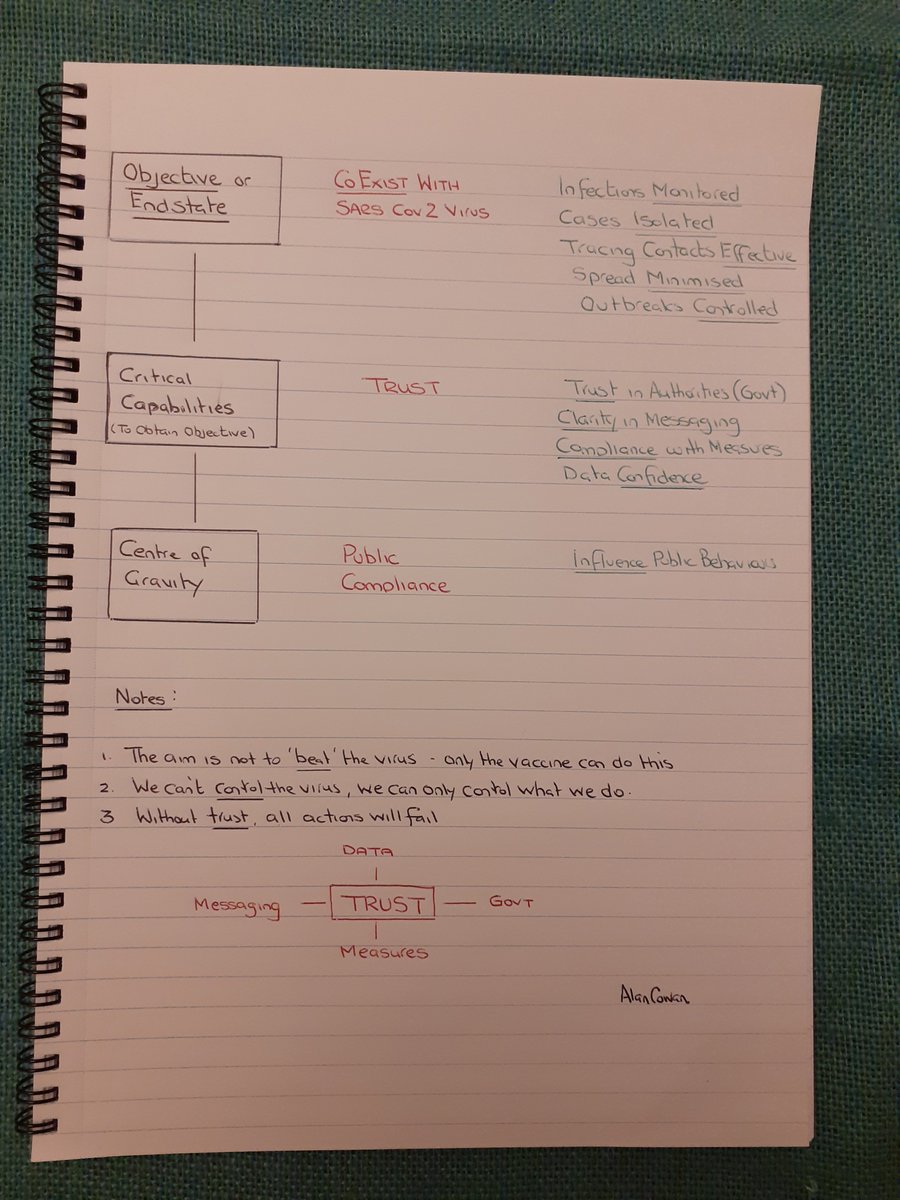 Objective or
Endstate
CoExist With
SARS Cov 2 Virus
Infections Monitored
Cases Isolated
Tracing Contacts Effective
Spread Minimised
Outbreaks Controlled
Critical
Capabilities
(To Obtain Objective)
TRUST
Trust in Authorities (Govt)
Clarity in Messaging
Compliance with Measures
Data Confidence
Centre of
Gravity
Public
Compliance
Influence Public Behaviours
Notes:
1. The aim is not to 'beat' the virus - only the vaccine can do this
2. We can't control the virus, we can only control what we do.
3 Without trust, all actions will fail
DATA
Messaging — TRUST — GOVT
Measures
Alan Cowan